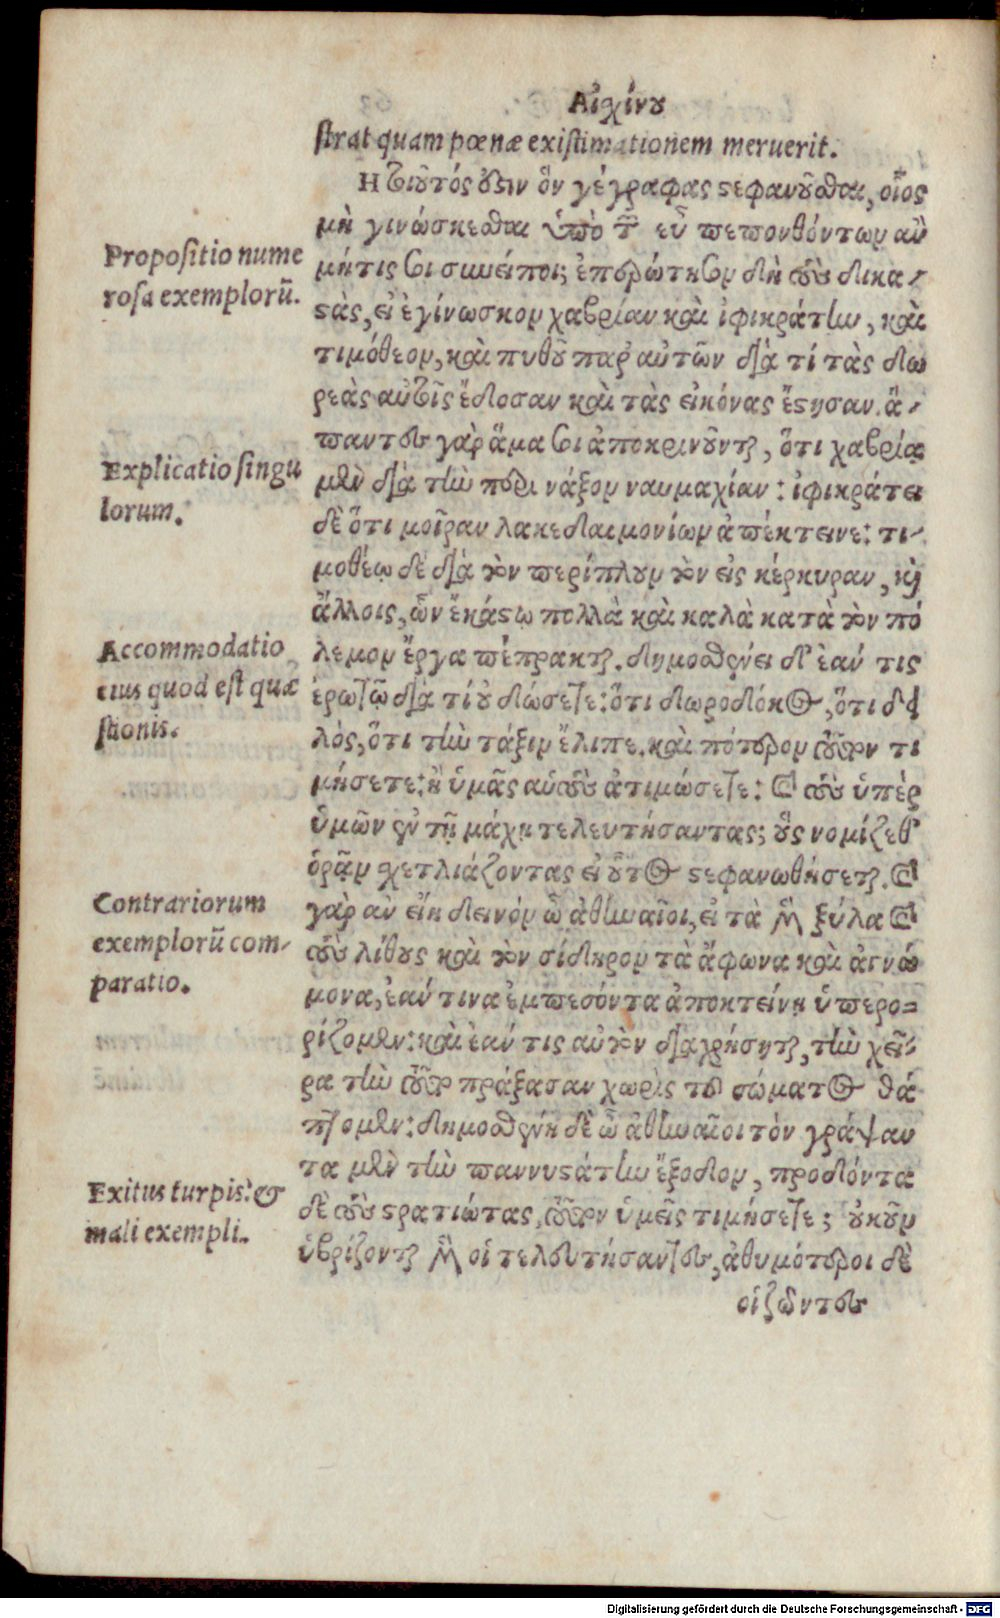 Αἰχίνου
strat quam pœnæ existimationem meruerit.
Η τοιοῦτός ἐστιν ὃν γέγραφας στεφανοῦσθαι, οἷος
μὴ γινώσκεσθαι ὑπὸ τῶν εὖ πεπονθότων ἂν
μήτις σοι συνείποι; ἐπερώτησον δὴ τοὺς δικα-
στὰς, εἰ ἐγίνωσκον χαβρίαν καὶ ἰφικράτην, καὶ
τιμόθεον, καὶ πυθοῦ παρ' αὐτῶν διὰ τί τὰς δω
ρεὰς αὐτοῖς ἔδοσαν καὶ τὰς εἰκόνας ἔστησαν. ἅ-
παντες γὰρ ἅμα σοι ἀποκρινοῦνται, ὅτι χαβρίᾳ
μὲν διὰ τὴν περὶ νάξον ναυμαχίαν: ἰφικράτει
δὲ ὅτι μοῖραν λακεδαιμονίων ἀπέκτεινε: τι-
μοθέῳ δὲ διὰ τὸν περίπλουν τὸν εἰς κέρκυραν, καὶ
ἄλλοις, ὧν ἑκάστῳ πολλὰ καὶ καλὰ κατὰ τὸν πό
λεμον ἔργα πέπρακται. δημοσθένει δ' ἐάν τις
ἐρωτᾷ διὰ τί οὐ δώσετε: ὅτι δωροδόκος, ὅτι δει
λὸς, ὅτι τὴν τάξιν ἔλιπε. καὶ πότερον τοῦτον τι
μήσετε: ἢ ὑμᾶς αὐτοὺς ἀτιμώσετε: καὶ τοὺς ὑπὲρ
ὑμῶν ἐν τῇ μάχῃ τελευτήσαντας; οὓς νομίζεθ'
ὁρᾷν σχετλιάζοντας εἰ οὗτος στεφανωθήσεται. καὶ
γὰρ ἂν εἴη δεινὸν ὦ ἀθηναῖοι, εἰ τὰ μὲν ξύλα καὶ
τοὺς λίθους καὶ τὸν σίδηρον τὰ ἄφωνα καὶ ἀγνώ
μονα, ἐάν τινα ἐμπεσόντα ἀποκτείνῃ ὑπερο-
ρίζομεν: καὶ ἐάν τις αὑτὸν διαχρήσηται, τὴν χεῖ-
ρα τὴν τοῦτο πράξασαν χωρὶς τοῦ σώματος θά
πτομεν: δημοσθένη δὲ ὦ ἀθηναῖοι τὸν γράψαν
τα μὲν τὴν παννυστάτην ἔξοδον, προδόντα
δὲ τοὺς στρατιώτας, τοῦτον ὑμεῖς τιμήσετε; οὐκοῦν
ὑβρίζονται μὲν οἱ τελευτήσαντες, ἀθυμότεροι δὲ
οἱ ζῶντες
Propositio nume
rosa exemplorū.
Explicatio singu
lorum.
Accommodatio
eius quod est quæ
stionis.
Contrariorum
exemplorū com-
paratio.
Exitus turpis: &
mali exempli.
Digitalisierung gefördert durch die Deutsche Forschungsgemeinschaft - DFG